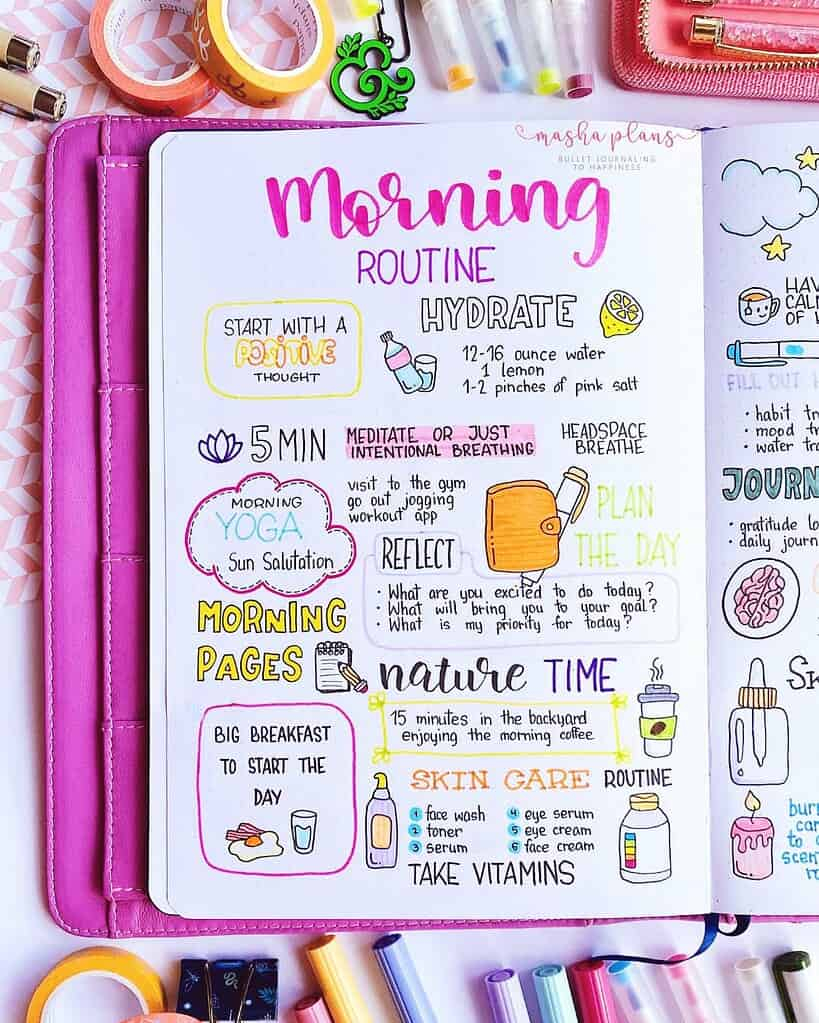 masha plans
BULLET JOURNALING
TO HAPPINESS
Morning
ROUTINE
START WITH A
POSITIVE
THOUGHT
HYDRATE
12-16 ounce water
1 lemon
1-2 pinches of pink salt
5 MIN
MEDITATE OR JUST
INTENTIONAL BREATHING
HEADSPACE
BREATHE
MORNING
YOGA
Sun Salutation
visit to the gym
go out jogging
workout app
PLAN
THE DAY
REFLECT
• What are you excited to do today?
• What will bring you to your goal?
• What is my priority for today?
MORNING
PAGES
nature TIME
15 minutes in the backyard
enjoying the morning coffee
BIG BREAKFAST
TO START THE
DAY
SKIN CARE ROUTINE
1 face wash
2 toner
3 serum
4 eye serum
5 eye cream
6 face cream
TAKE VITAMINS
HAV
CALM
OF
FILL OUT
• habit tr
• mood tr
• water tra
JOURN
• gratitude lo
• daily journ
SK
burn
can
to
scen